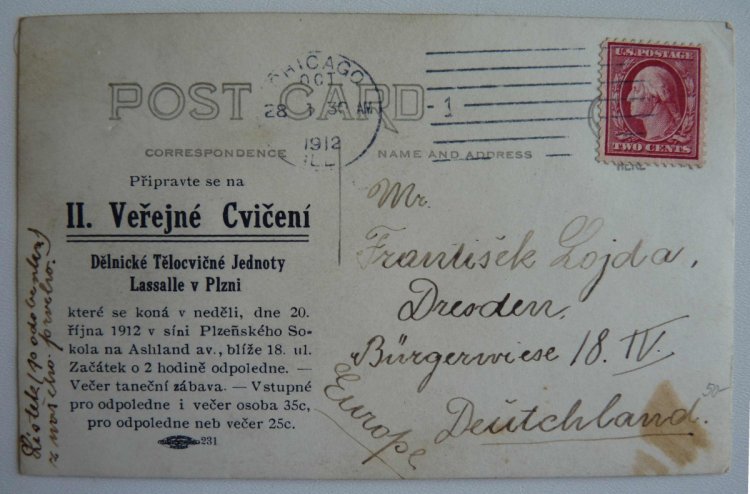 CHICAGO
OCT
28
30 AM
1912
ILL.
1
U.S. POSTAGE
TWO CENTS
POST CARD
CORRESPONDENCE
NAME AND ADDRESS
Připravte se na
II. Veřejné Cvičení
Dělnické Tělocvičné Jednoty
Lassalle v Plzni
které se koná v neděli, dne 20.
října 1912 v síni Plzeňského So-
kola na Ashland av., blíže 18. ul.
Začátek o 2 hodině odpoledne. —
Večer taneční zábava. — Vstupné
pro odpoledne i večer osoba 35c,
pro odpoledne neb večer 25c.
231
Lístek (s podobenkou)
z našeho prvního.
Mr.
František Lojda,
Dresden,
Bürgerwiese 18. IV.
Deütchland.
Europe
50-